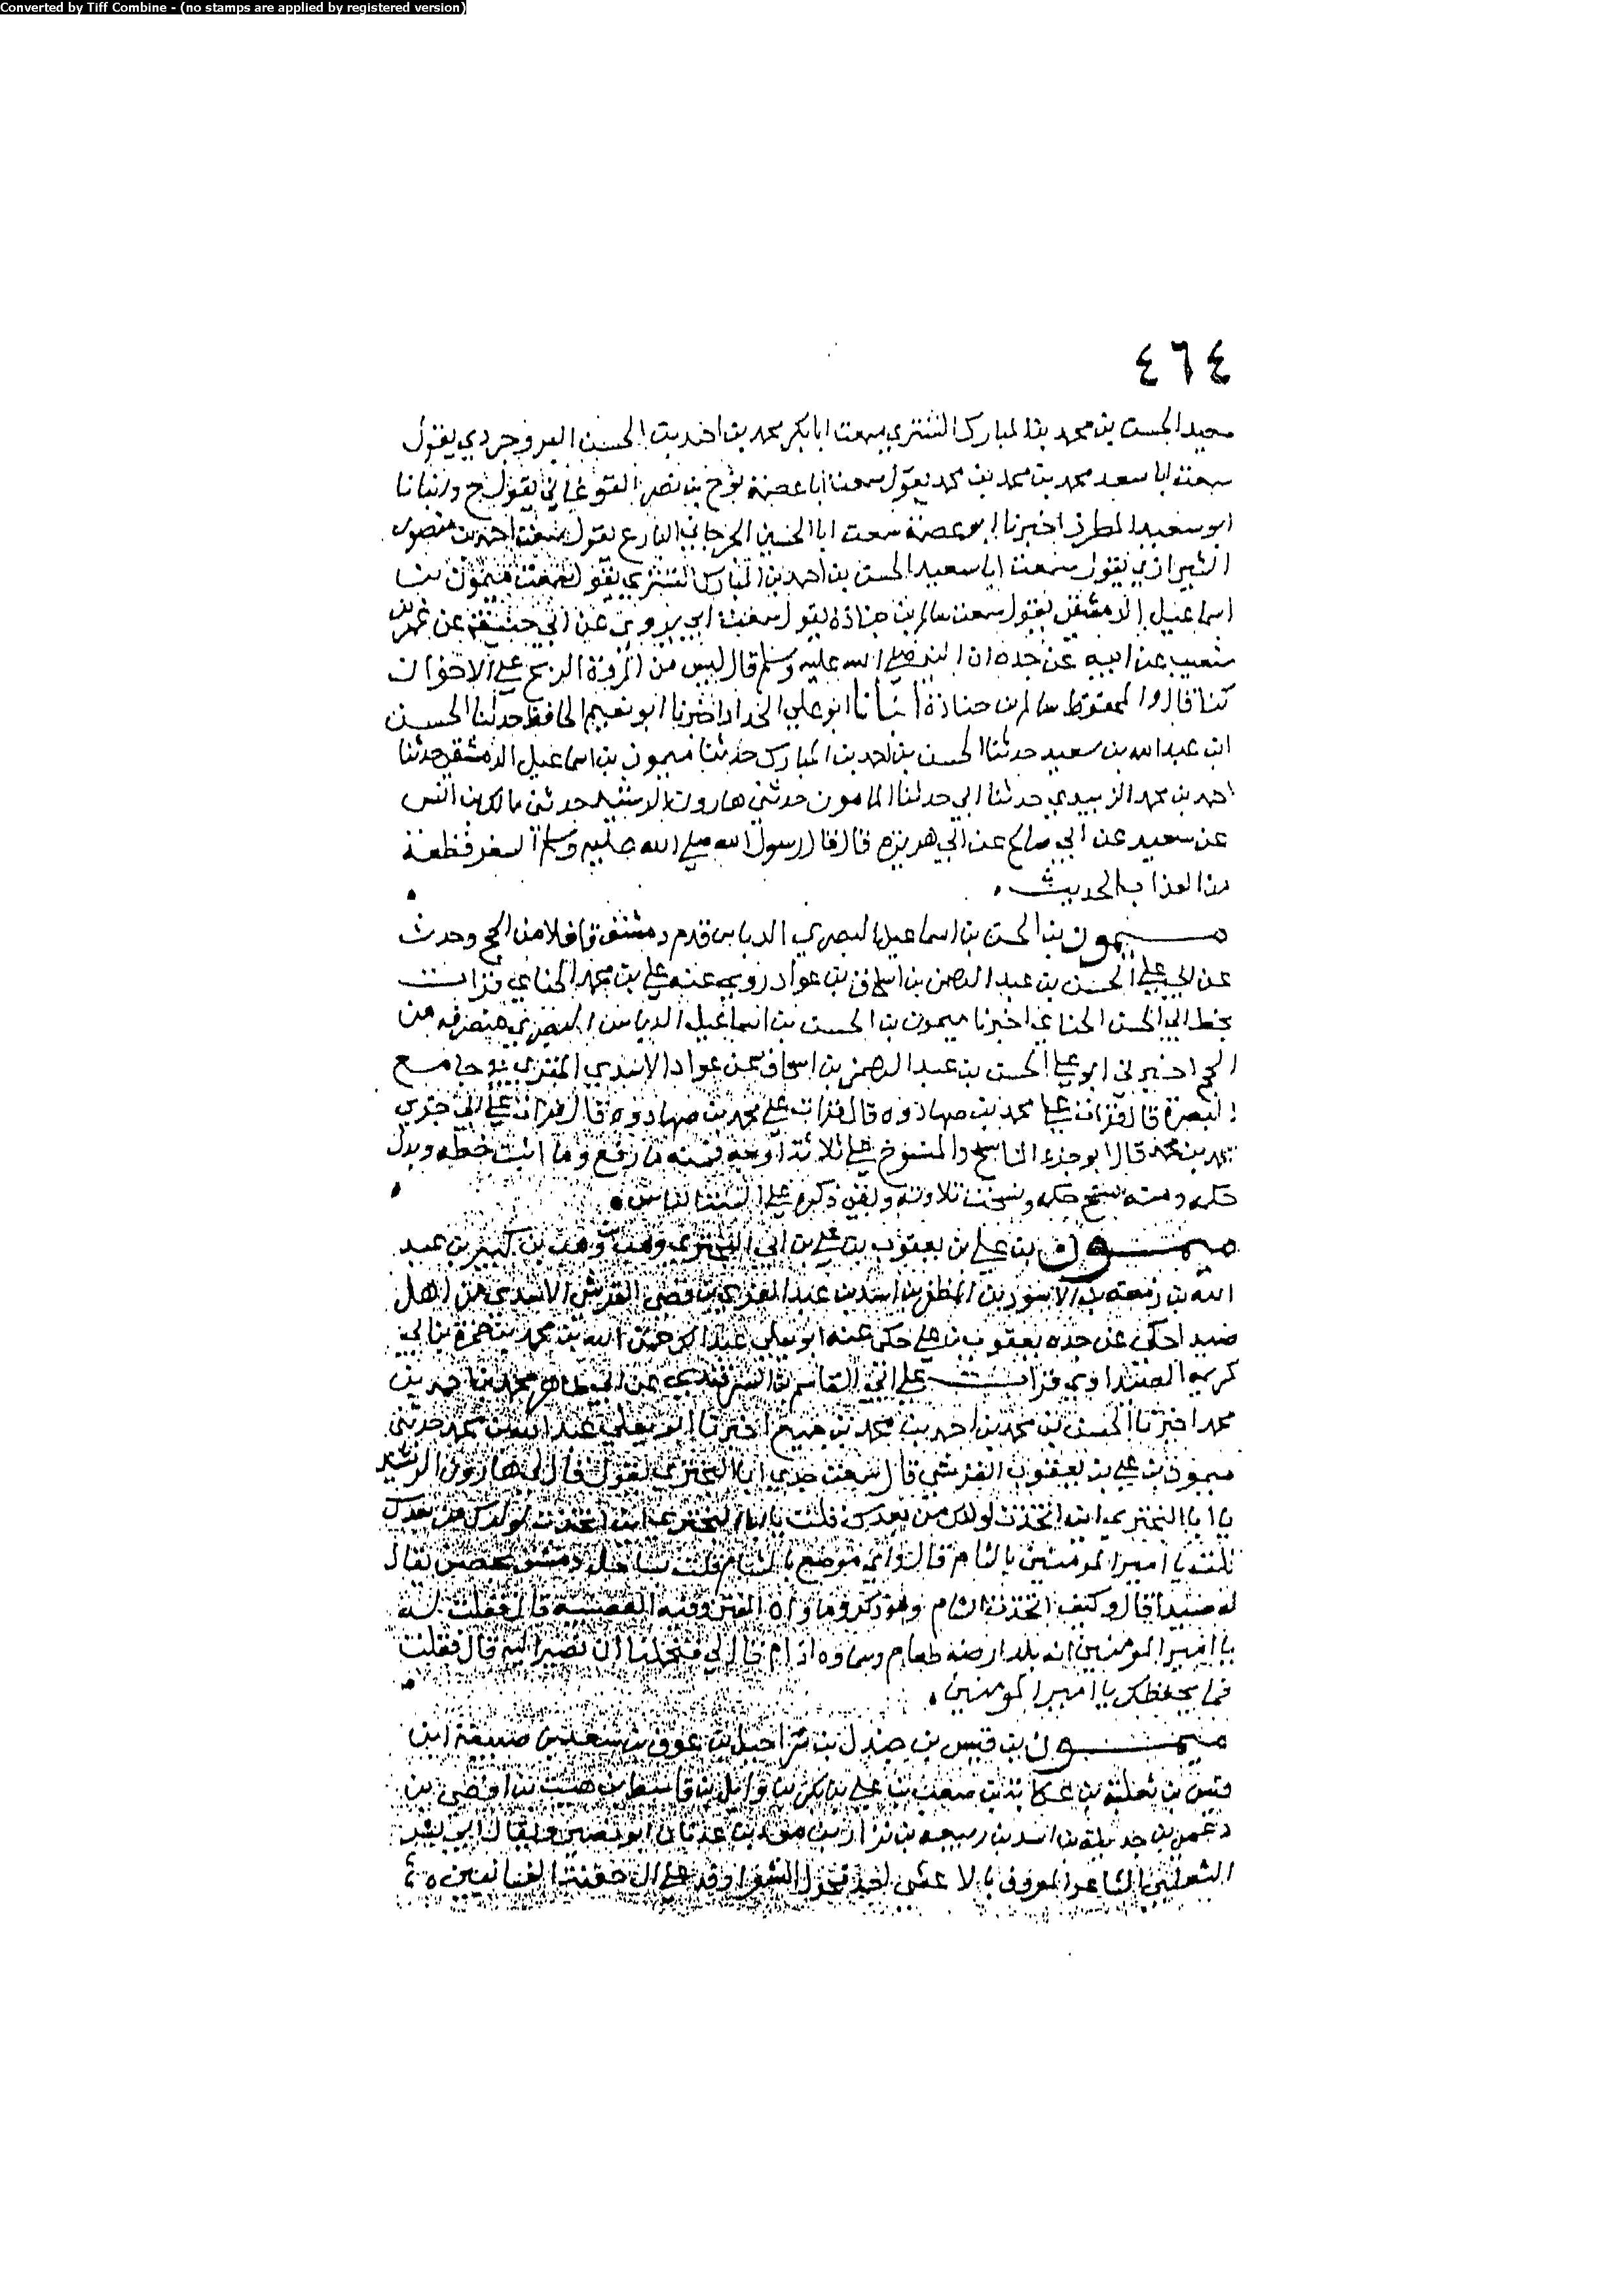 Converted by Tiff Combine - (no stamps are applied by registered version)
٤٦٤
سعيد الحسن بن محمد بن المبارك التستري سمعت ابا بكر محمد بن احمد بن الحسن البروجردي يقول
سمعت ابا سعد محمد بن محمد بن محمد يقول سمعت ابا عصمة نوح بن نصر الفرغاني يقول ح وانبانا
ابو سعيد المطرز اخبرنا ابو عصمة سمعت ابا الحسين الجرجاني يقول سمعت احمد بن منصور
الشيرازي يقول سمعت ابا سعيد الحسن بن احمد بن المبارك التستري يقول سمعت ميمون بن
اسماعيل الدمشقي يقول سمعت سالم بن جنادة يقول سمعت ابي يروي عن ابي حنيفة عن عمرو بن
شعيب عن ابيه عن جده ان النبي صلى الله عليه وسلم قال ليس من المروة الربح على الاخوان
كذا قال والمحفوظ سالم بن جنادة انبانا ابو علي الحداد اخبرنا ابو نعيم الحافظ حدثنا الحسن
ابن عبد الله بن سعيد حدثنا الحسن بن احمد بن المبارك حدثنا ميمون بن اسماعيل الدمشقي حدثنا
احمد بن محمد الزبيدي حدثنا ابي حدثنا المامون حدثني هارون الرشيد حدثني مالك بن انس
عن سعيد عن ابي صالح عن ابي هريرة قال قال رسول الله صلى الله عليه وسلم السفر قطعة
من العذاب الحديث
ميمون بن الحسن بن اسماعيل البصري الدباس قدم دمشق قافلا من الحج وحدث
عن ابي علي الحسن بن عبد الرحمن بن اسحاق بن عواد روى عنه علي بن محمد الحنائي قرات
بخط ابي الحسن الحنائي اخبرنا ميمون بن الحسن بن اسماعيل الدباس البصري منصرفه من
الحج اخبرني ابو علي الحسن بن عبد الرحمن بن اسحاق بن عواد الاسدي المقري في جامع
البصرة قال قرات على محمد بن قال قرات على محمد بن قال قرات على ابي جزي
محمد بن محمد قال ابو جزء الناسخ والمنسوخ على ثلاثة اوجه فمنه ما رفع وما اثبت خطه وبدل
حكمه ومنه نسخ حكمه ونسخت تلاوته وبقي ذكره على السنة الناس
ميمون بن علي بن يعقوب بن علي بن ابي البختري وهب بن وهب بن كبير بن عبد
الله بن زمعة بن الاسود بن المطلب بن اسد بن عبد العزى بن قصي القرشي الاسدي من اهل
صيدا حكى عن جده يعقوب بن علي حكى عنه ابو يعلى عبد الله بن محمد بن حمزة بن ابي
كريمة الصيداوي قرات على ابي القاسم بن السمرقندي عن ابي طاهر محمد بن احمد بن
محمد اخبرنا الحسن بن محمد بن احمد بن محمد بن جميع اخبرنا ابو يعلى عبد الله بن محمد حدثني
ميمون بن علي بن يعقوب القرشي قال سمعت جدي ابا البختري يقول قال لي هارون الرشيد
يا ابا البختري اين اتخذت لولدك من بعدك قلت يا ابا البختري اين اتخذت لولدك من بعدك
قلت يا امير المومنين بالشام قال واي موضع بالشام قلت ساحل دمشق بحصن يقال
له صيدا قال وكيف اتخذت الشام وهو وفيه العصبية قال فقلت له
يا امير المومنين انه بلد ارضه طعام وسماوه ادام قال لي ان نصير اليه قال فقلت
يحفظك يا امير المومنين
ميمون بن قيس بن جندل بن شراحيل بن عوف بن سعد بن ضبيعة ابن
قيس بن ثعلبة بن عكابة بن صعب بن علي بن بكر بن وائل بن قاسط بن هنب بن افصى بن
دعمي بن جديلة بن اسد بن ربيعة بن نزار بن معد بن عدنان ابو بصير ويقال ابو بشر
الثعلبي الشاعر المعروف بالاعشى احد فحول الشعراء وفد على ال جفنة الغسانيين